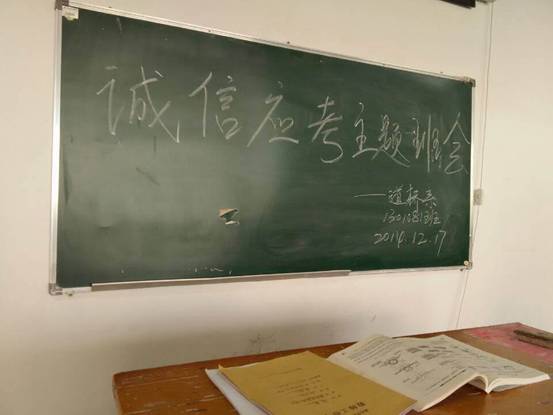 诚信应考主题班会
——道桥系
130108班
2014.12.17